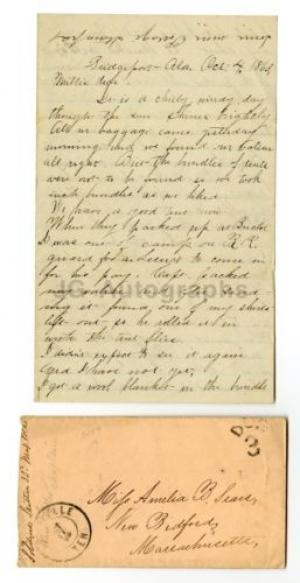 Bridgeport Ala. Oct 4, 1863
It is a chilly windy day
though the sun shines brightly
All our baggage came yesterday
morning and we found our
all right. But the bundles of tents
were not to be found so we took
such bundles as we liked.
We have a good one now
When they packed up at
I was out of camp on R.R.
guard for a to come in
for his pay. Capt packed
my
it found one of my shirts
left out so he rolled it in
the tent
I didn't expect to see it again
and I have not yet;
I got a wool blanket in the bundle
JG Autographs
DUE
3
VILLE
TEN
Miss Amelia B. Sears,
New Bedford,
Massachusetts,